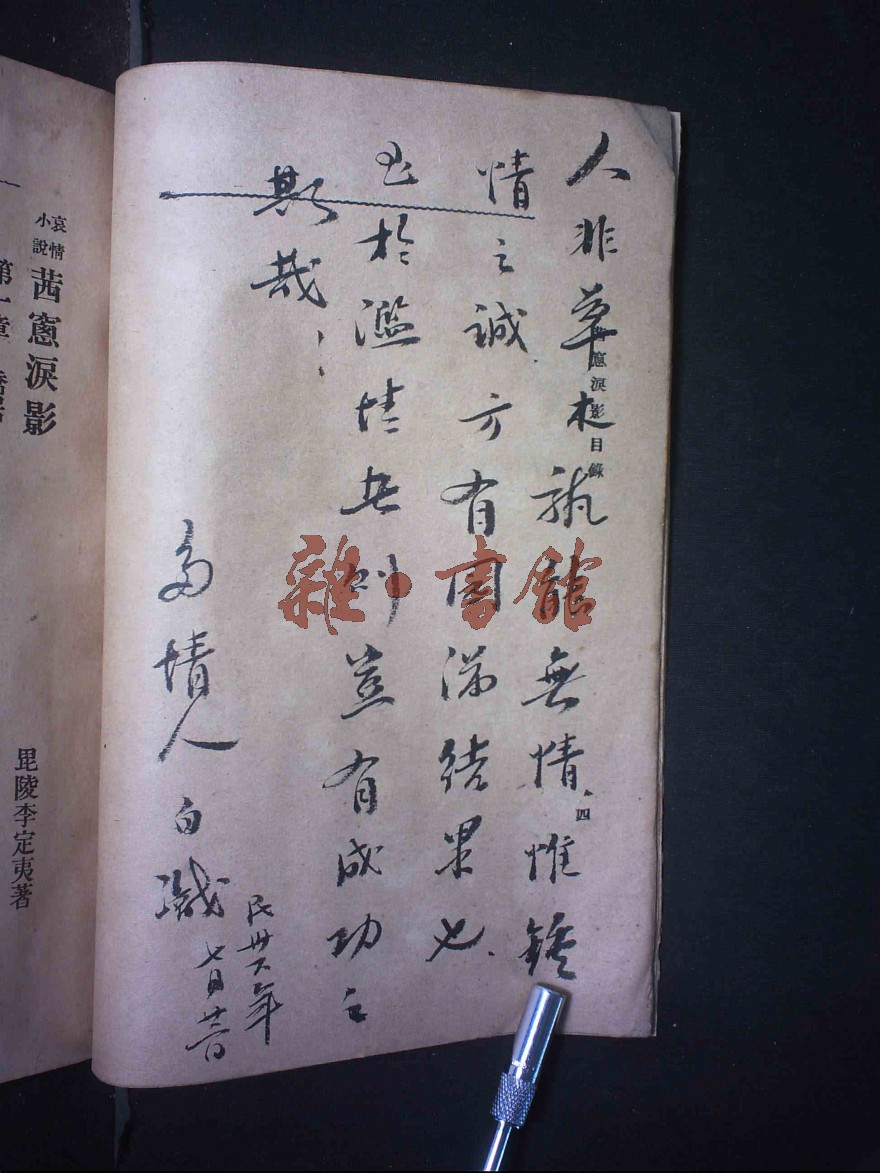 茜窻淚影目錄
四
人非草木孰能無情惟鍾
情之誠方有圓滿結果也
至於濫情者則豈有成功之
期哉
民卅六年
七月
多情人白識
雜·書館
哀情
小說
茜窻淚影
第一章
毘陵李定夷著